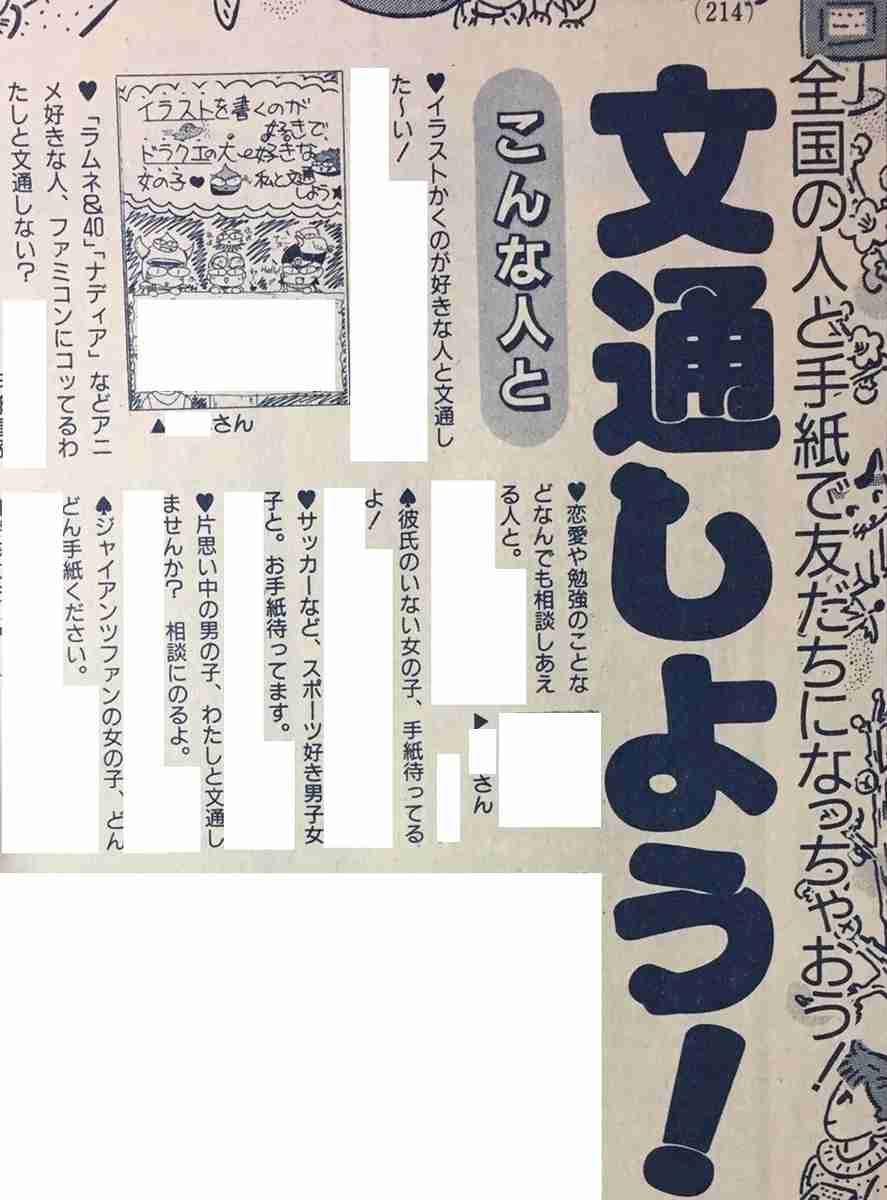 (214)
全国の人と手紙で友だちになっちゃおう!
文通しよう!
こんな人と
♥イラストかくのが好きな人と文通し
た〜い!
イラストを書くのが
好きで、
ドラクエの大好きな
女の子♥私と文通
しよう★
▲
さん
♥「ラムネ&40」「ナディア」などアニ
メ好きな人、ファミコンにコッてるわ
たしと文通しない?
♥恋愛や勉強のことな
どなんでも相談しあえ
る人と。
▶
さん
♠彼氏のいない女の子、手紙待ってる
よ!
♥サッカーなど、スポーツ好き男子女
子と。お手紙待ってます。
♥片思い中の男の子、わたしと文通し
ませんか? 相談にのるよ。
♠ジャイアンツファンの女の子、どん
どん手紙ください。